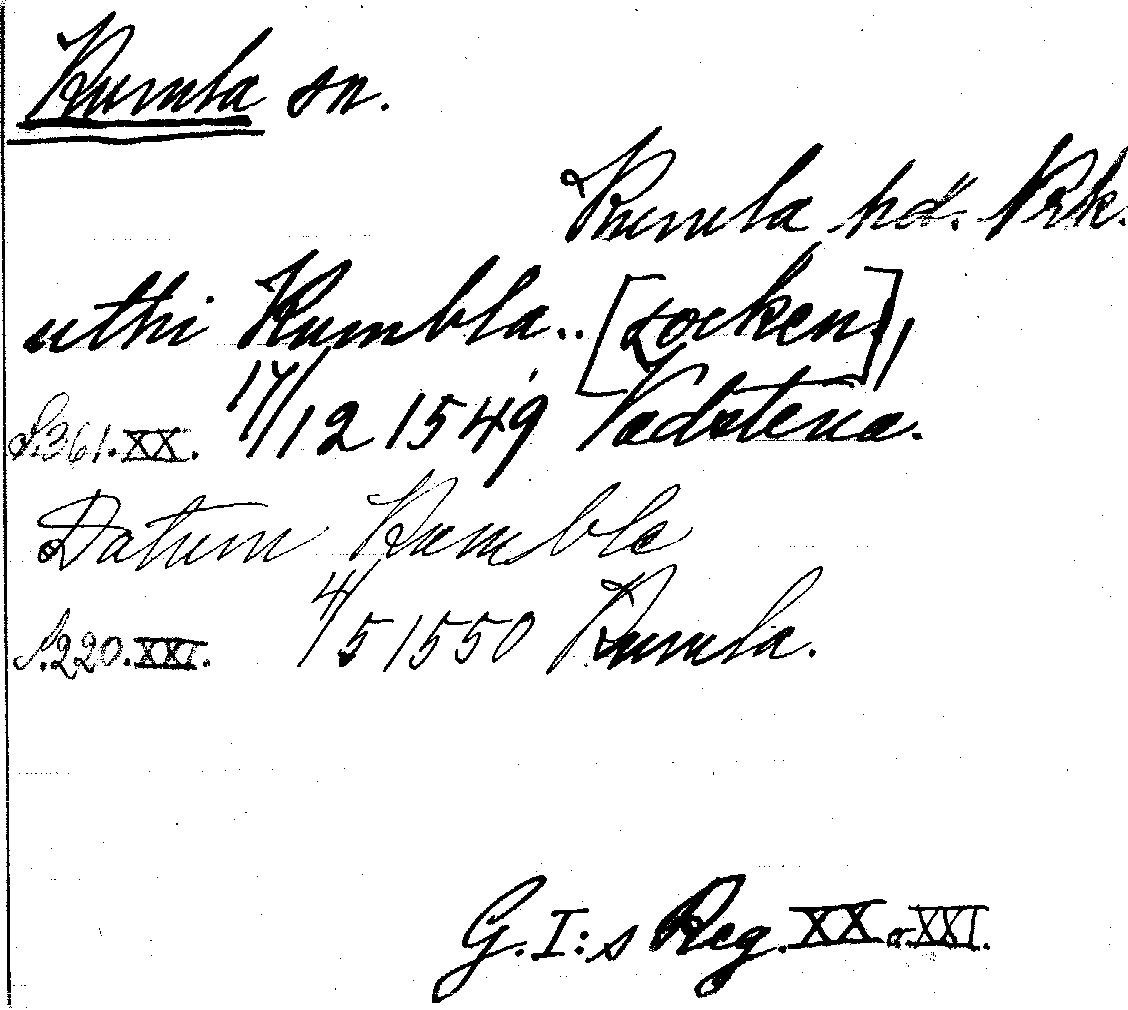 Kumla sn.
Kumla hd. Nrk.
uthi Kumbla.. [socken],
S.361.XX. 17/12 1549 Vadstena.
Datum Kumbla
S.220.XXI. 4/5 1550 Kumla.
G.I:s Reg. XX o. XXI.